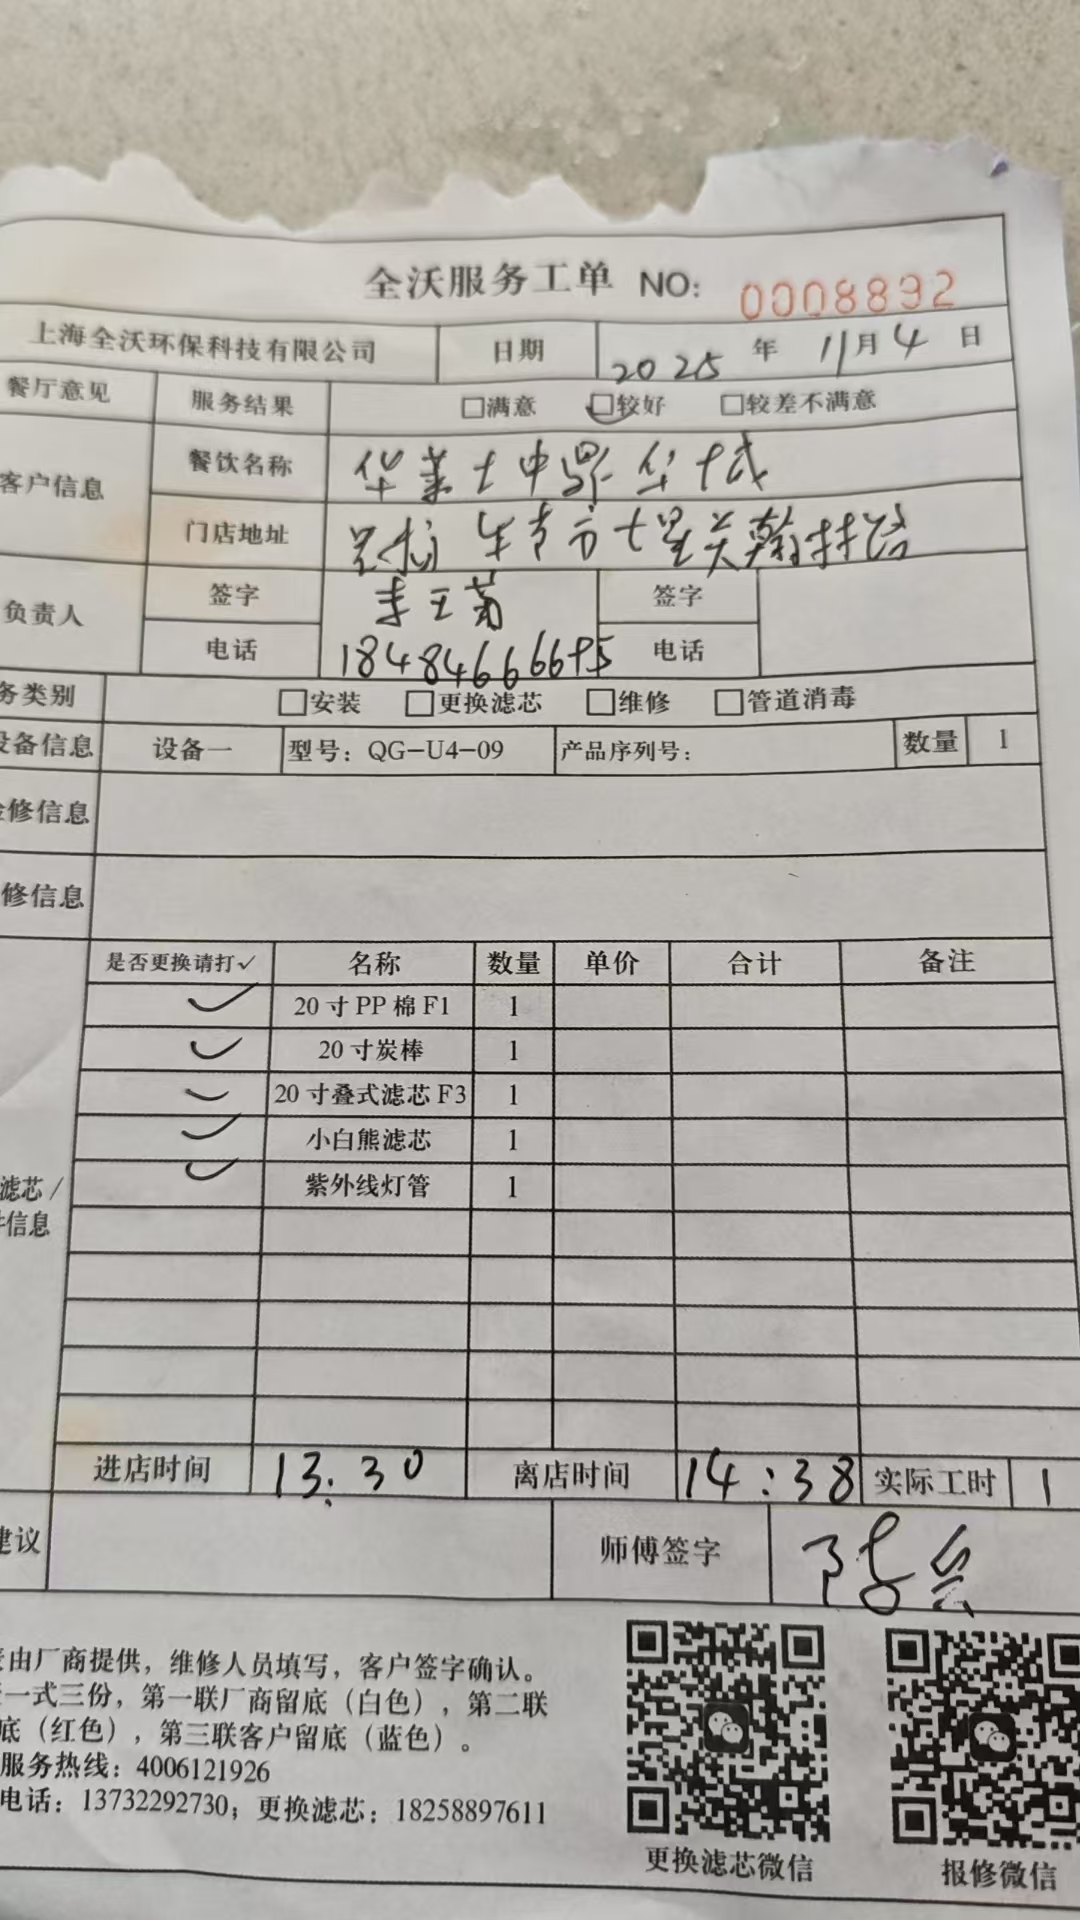 全沃服务工单 NO: 0008892
上海全沃环保科技有限公司 日期 2025 年 11月 4 日
餐厅意见 服务结果 □满意 □较好 □较差不满意
客户信息 餐饮名称 华莱士中
门店地址
负责人 签字 签字
电话 18484666695 电话
务类别 □安装 □更换滤芯 □维修 □管道消毒
设备信息 设备一 型号：QG-U4-09 产品序列号： 数量 1
修信息
修信息
是否更换请打✓ 名称 数量 单价 合计 备注
✓ 20寸PP棉F1 1
✓ 20寸炭棒 1
✓ 20寸叠式滤芯F3 1
✓ 小白熊滤芯 1
✓ 紫外线灯管 1
滤芯/
信息
进店时间 13:30 离店时间 14:38 实际工时 1
建议 师傅签字
由厂商提供，维修人员填写，客户签字确认。
一式三份，第一联厂商留底（白色），第二联
底（红色），第三联客户留底（蓝色）。
服务热线：4006121926
电话：13732292730；更换滤芯：18258897611
更换滤芯微信 报修微信